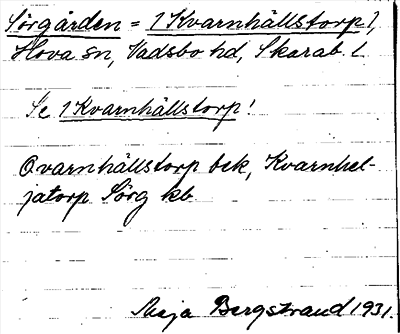 Sörgården = 1 Kvarnhällstorp 1,
Hova sn, Vadsbo hd, Skarab. l
Se 1 Kvarnhällstorp!
Qvarnhällstorp bek, Kvarnhel-
jatorp Sörg kb
Maja Bergstrand 1931.